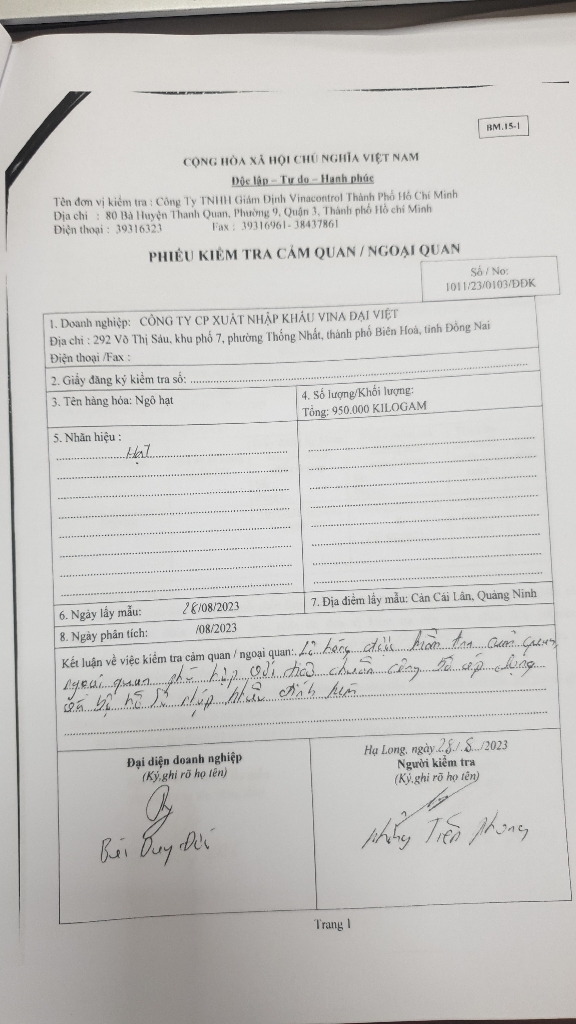 BM.15-1
CỘNG HÒA XÃ HỘI CHỦ NGHĨA VIỆT NAM
Độc lập – Tự do – Hạnh phúc
Tên đơn vị kiểm tra : Công Ty TNHH Giám Định Vinacontrol Thành Phố Hồ Chí Minh
Địa chỉ : 80 Bà Huyện Thanh Quan, Phường 9, Quận 3, Thành phố Hồ chí Minh
Điện thoại : 39316323 Fax : 39316961- 38437861
PHIẾU KIỂM TRA CẢM QUAN / NGOẠI QUAN
Số / No:
1011/23/0103/ĐĐK
1. Doanh nghiệp: CÔNG TY CP XUẤT NHẬP KHẨU VINA ĐẠI VIỆT
Địa chỉ : 292 Võ Thị Sáu, khu phố 7, phường Thống Nhất, thành phố Biên Hoà, tỉnh Đồng Nai
Điện thoại /Fax :
2. Giấy đăng ký kiểm tra số:
3. Tên hàng hóa: Ngô hạt
4. Số lượng/Khối lượng:
Tổng: 950.000 KILOGAM
5. Nhãn hiệu :
Hạt
6. Ngày lấy mẫu: 28/08/2023
7. Địa điểm lấy mẫu: Cản Cái Lân, Quảng Ninh
8. Ngày phân tích: /08/2023
Kết luận về việc kiểm tra cảm quan / ngoại quan: Lô hàng được kiểm tra cảm quan,
ngoại quan phù hợp với tiêu chuẩn công bố áp dụng
và bộ hồ sơ nhập khẩu đính kèm
Đại diện doanh nghiệp
(Ký,ghi rõ họ tên)
Bùi Duy Đức
Hạ Long, ngày 28./.8.../2023
Người kiểm tra
(Ký,ghi rõ họ tên)
Tiến Phong
Trang 1